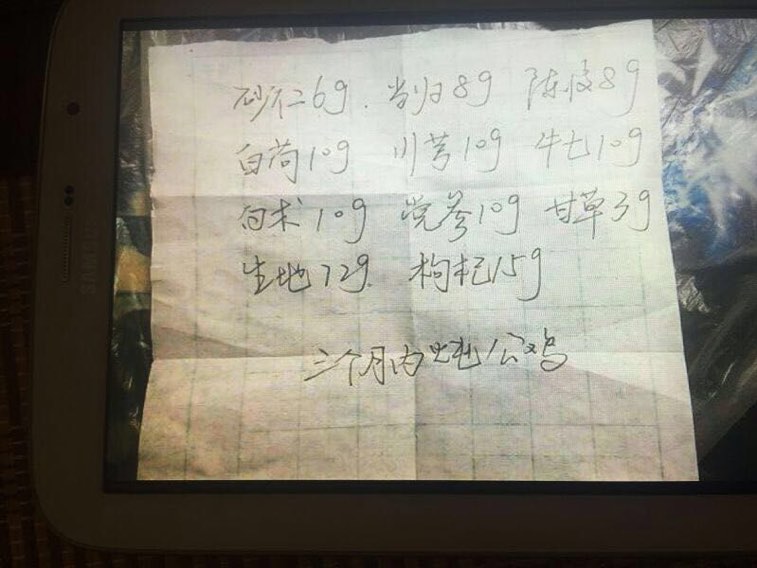 砂仁6g. 当归8g 陈皮8g
白芍10g 川芎10g 牛七10g
白术10g 党参10g 甘草3g
生地12g. 枸杞15g
三个月内炖公鸡
SAMSUNG